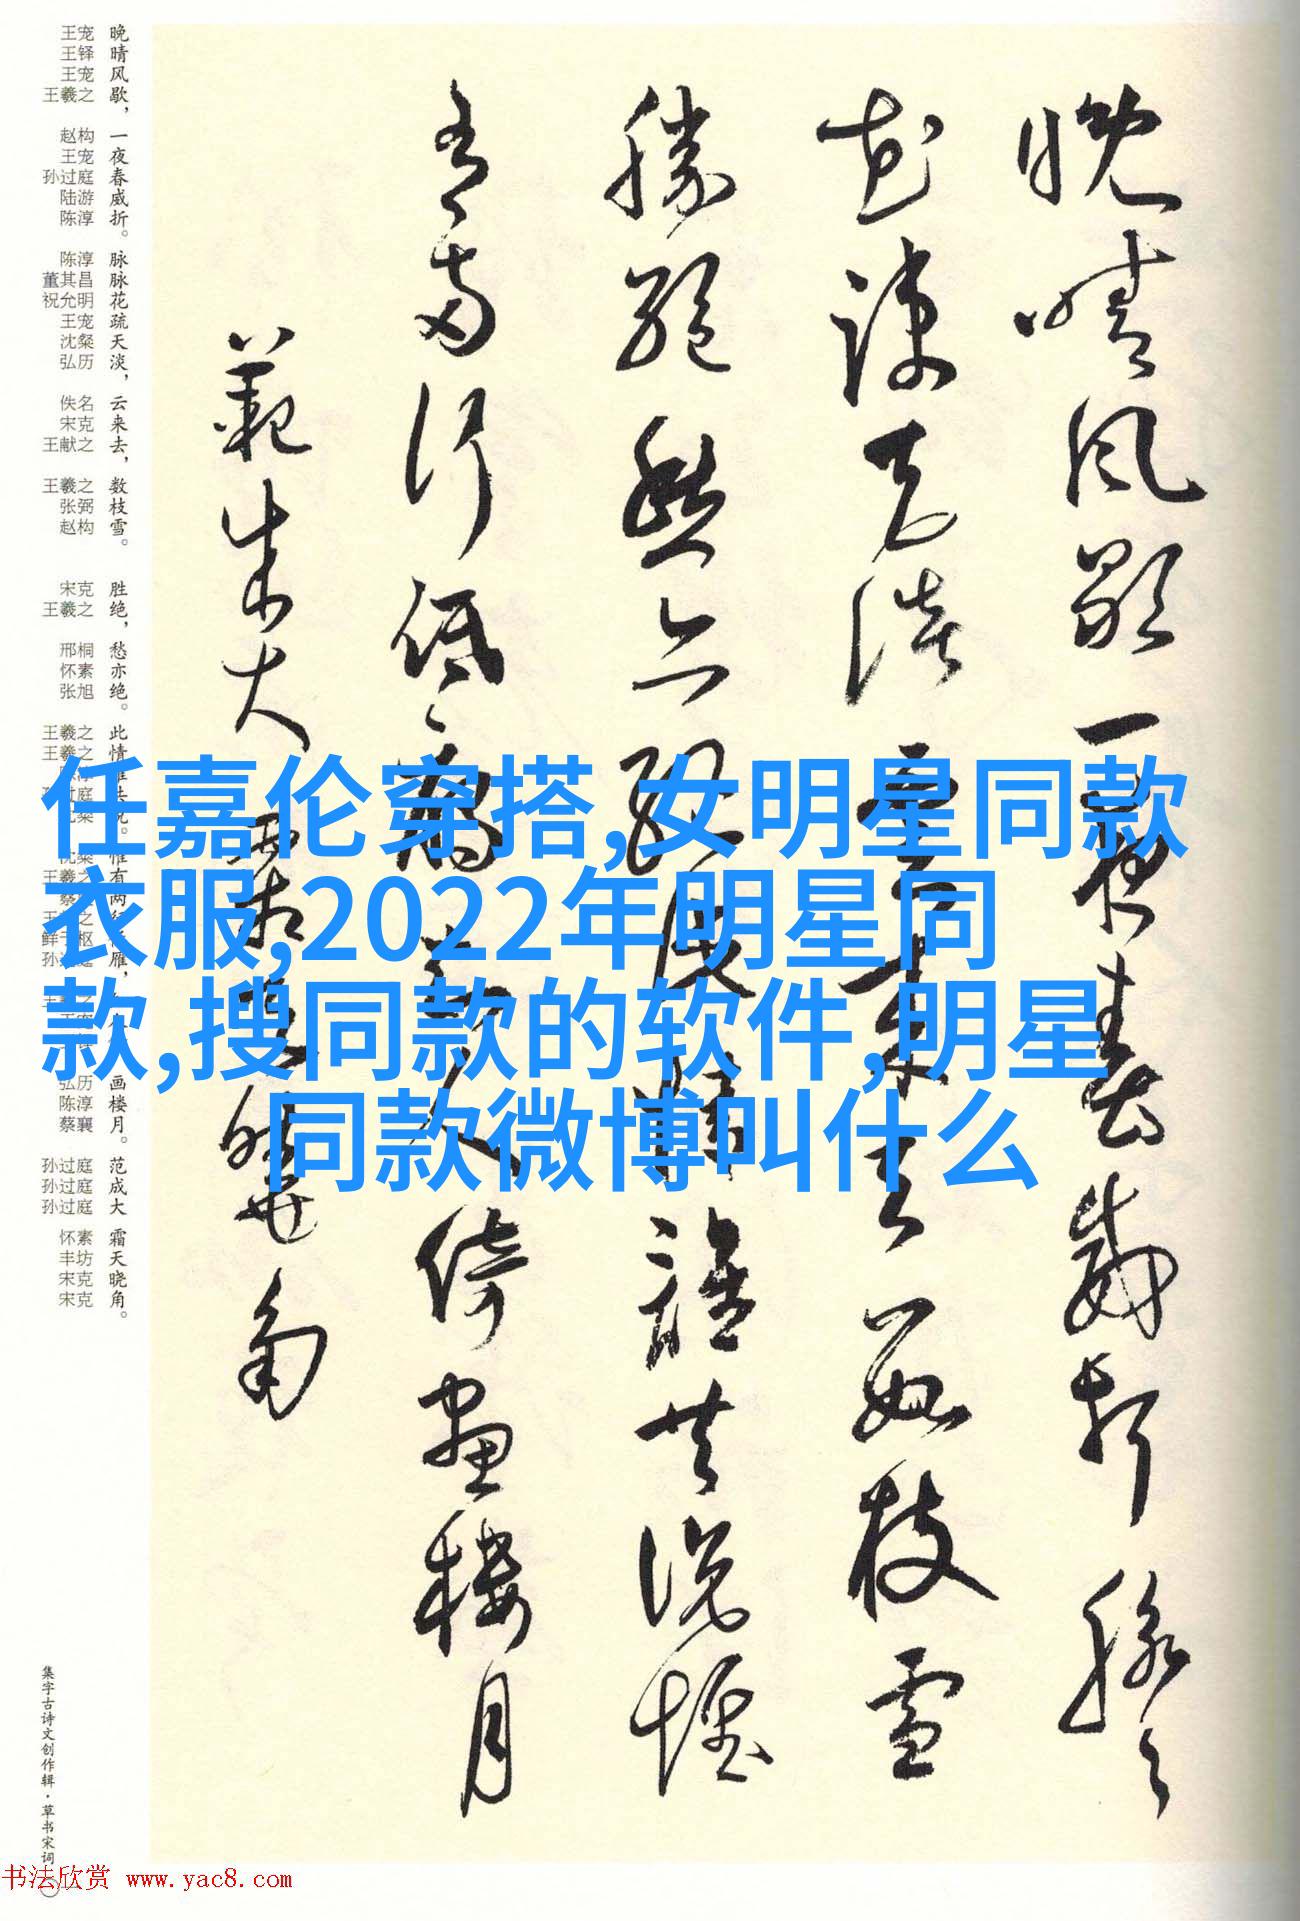 晚晴风歇一夜春威折脉々
花疏天淡云来去数枝雪
胜绝愁亦绝此情谁共说惟
有两行低雁有人倚画楼月
范成大霜天晓角
任嘉伦穿搭,女明星同款
衣服,2022年明星同
款,搜同款的软件,明星
同款微博叫什么
晚晴风歇，
王宠 王铎 王宠 王羲之
一夜春威折。
赵构 王宠 孙过庭 陆游 陈淳
脉脉花疏天淡，
陈淳 董其昌 祝允明 王宠 沈粲 弘历
云来去，
佚名 宋克 王献之
数枝雪。
王羲之 张弼 赵构
胜绝，
宋克 王羲之
愁亦绝。
邢桐 怀素 张旭
此情
王羲之 王羲之
有两
雁，
画楼月。
弘历 陈淳 蔡襄
范成大
孙过庭 孙过庭 孙过庭
霜天晓角。
怀素 丰坊 宋克 宋克
集字古诗文创作辑·草书宋词
书法欣赏 www.yac8.com